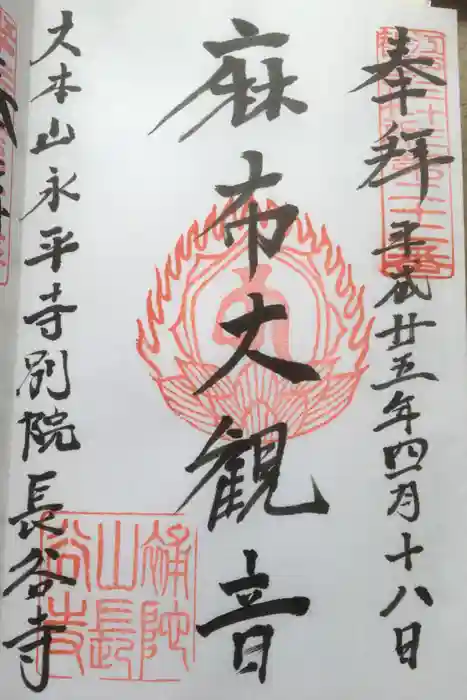 奉拝
平成廿五年四月十八日
麻布大観音
大本山永平寺別院長谷寺
補陀
山長
谷寺